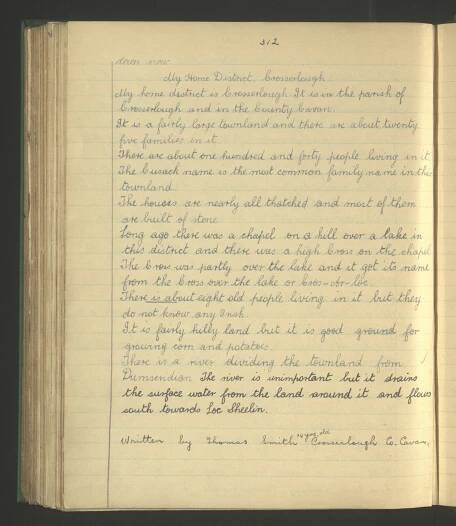 312
down now
My Home District, Crosserlough
My home district is Crosserlough. It is in the parish of
Crosserlough and in the County Cavan.
It is a fairly large townland and there are about twenty
five families in it.
There are about one hundred and forty people living in it
The Cusack name is the most common family name in this
townland.
The houses are nearly all thatched and most of them
are built of stone
Long ago there was a chapel on a hill over a lake in
this district and there was a high Cross on the chapel
The Cross was partly over the lake and it got its name
from the Cross over the lake or Cros-ar-loc.
There is about eight old people living in it but they
do not know any Irish.
It is fairly hilly land but it is good ground for
growing corn and potatoes.
There is a river dividing the townland from
The river is unimportant but it drains
the surface water from the land around it and flows
south towards Loc Sheelin.
Written by Thomas Smith 14 yrs. old Crosserlough Co. Cavan.